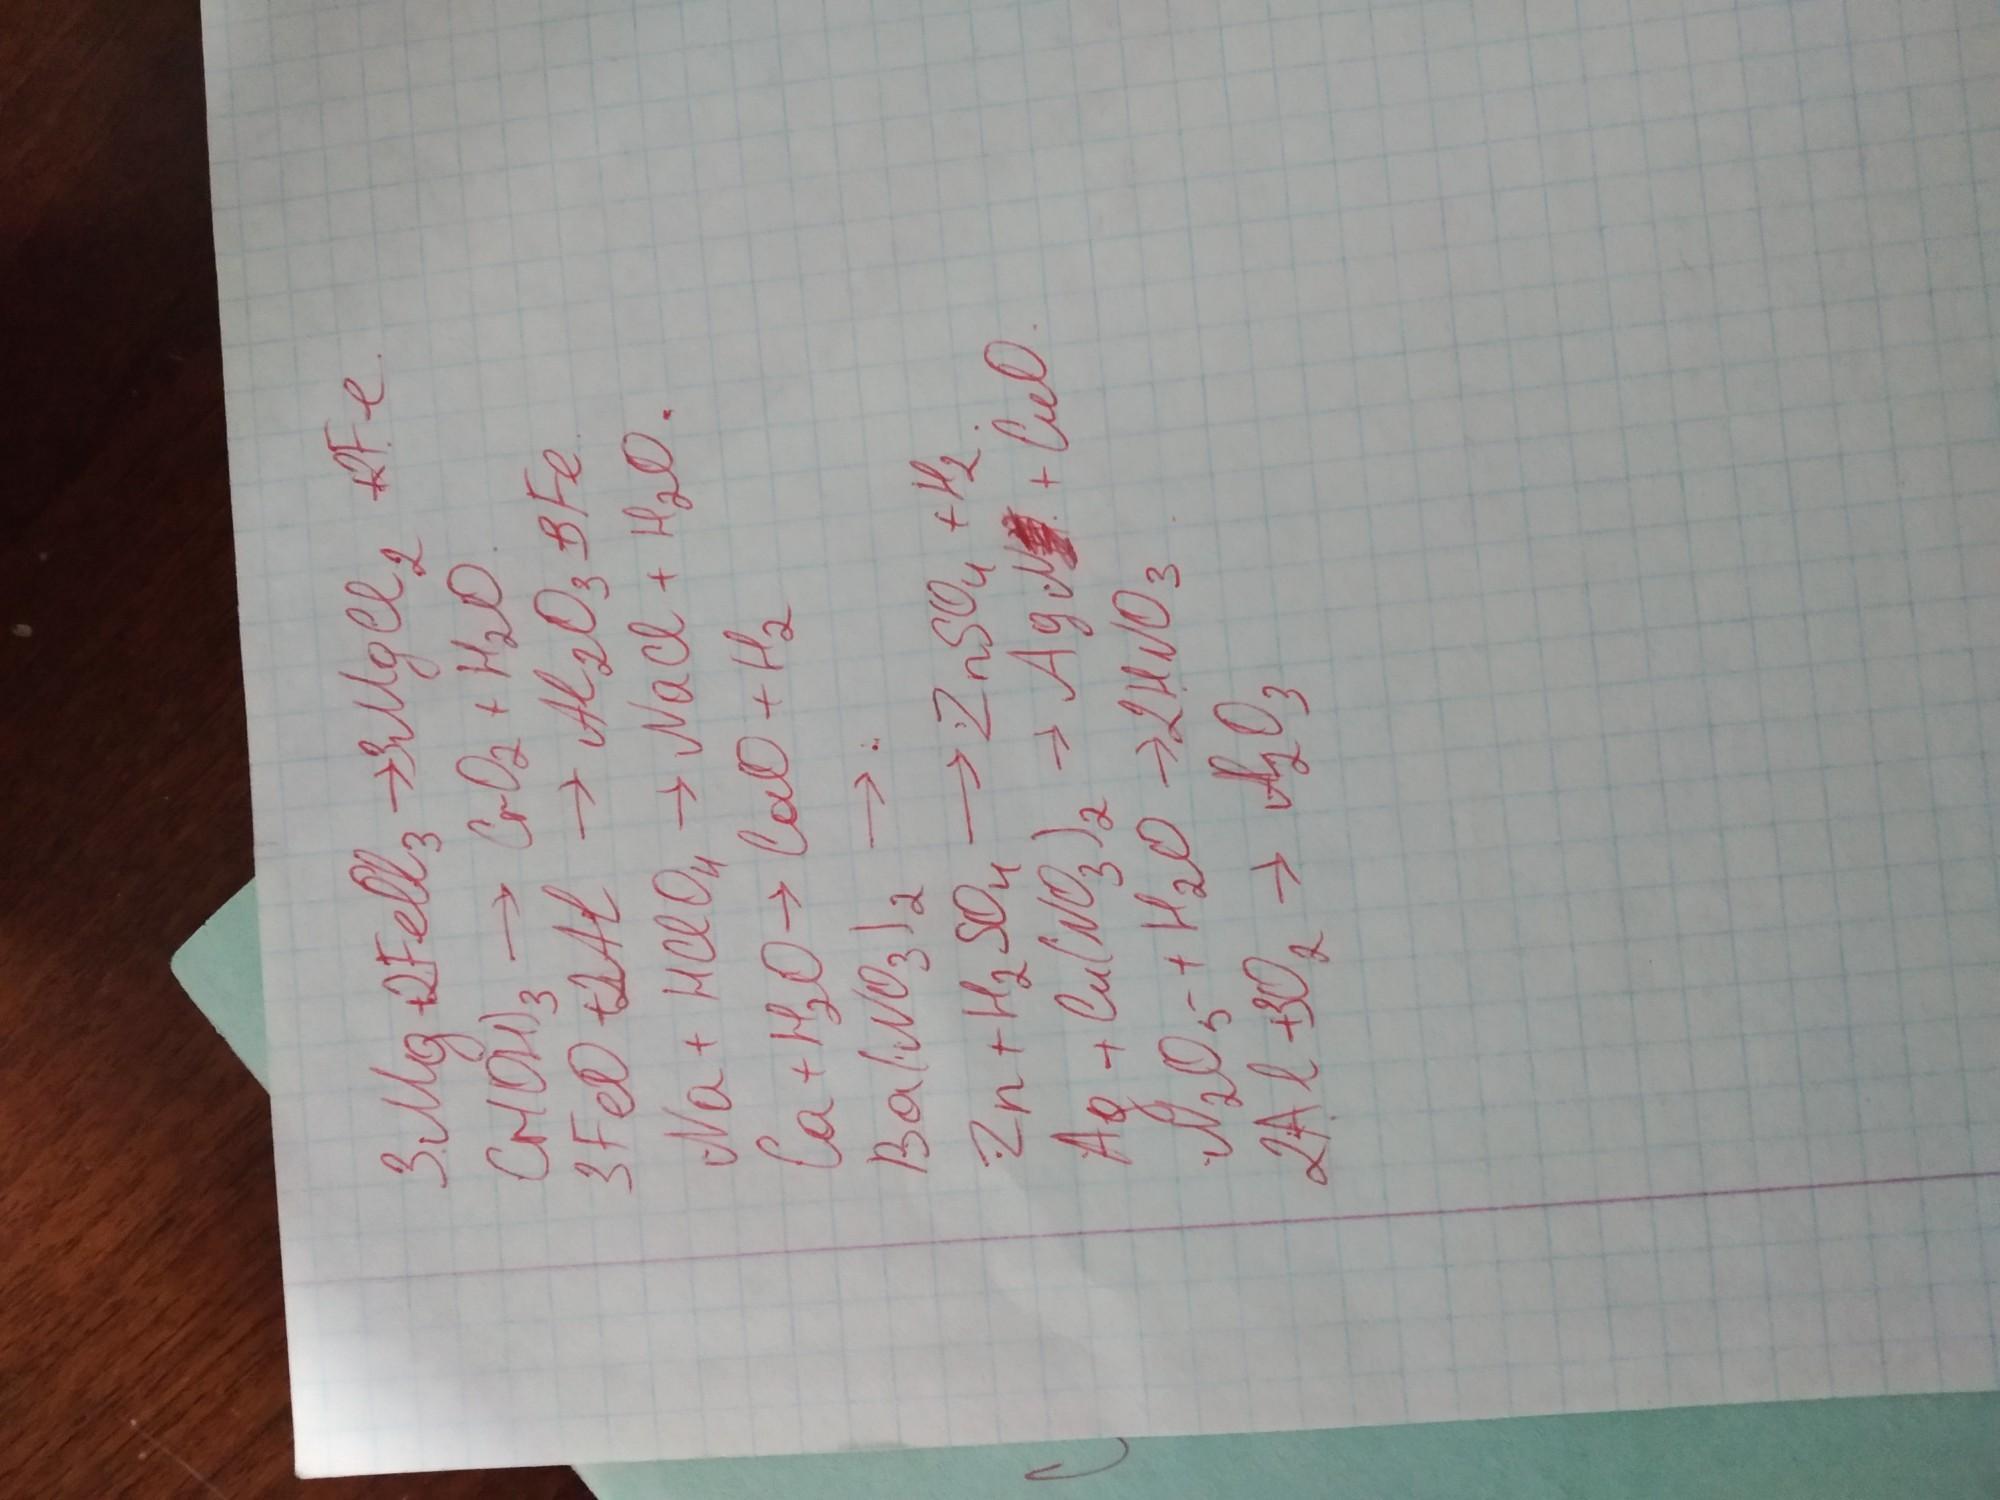 3Mg+2FeCl3→3MgCl2 +2Fe
Cr(OH)3 → CrO2 + H2O
3FeO +2Al → Al2O3 + 3Fe
Na + HClO4 → NaCl + H2O.
Ca + H2O → CaO + H2
Ba(NO3)2 → ..
Zn + H2SO4 → ZnSO4 + H2.
Ag + Cu(NO3)2 → AgN + CuO.
N2O5 + H2O → 2HNO3
2Al +3O2 → A2O3